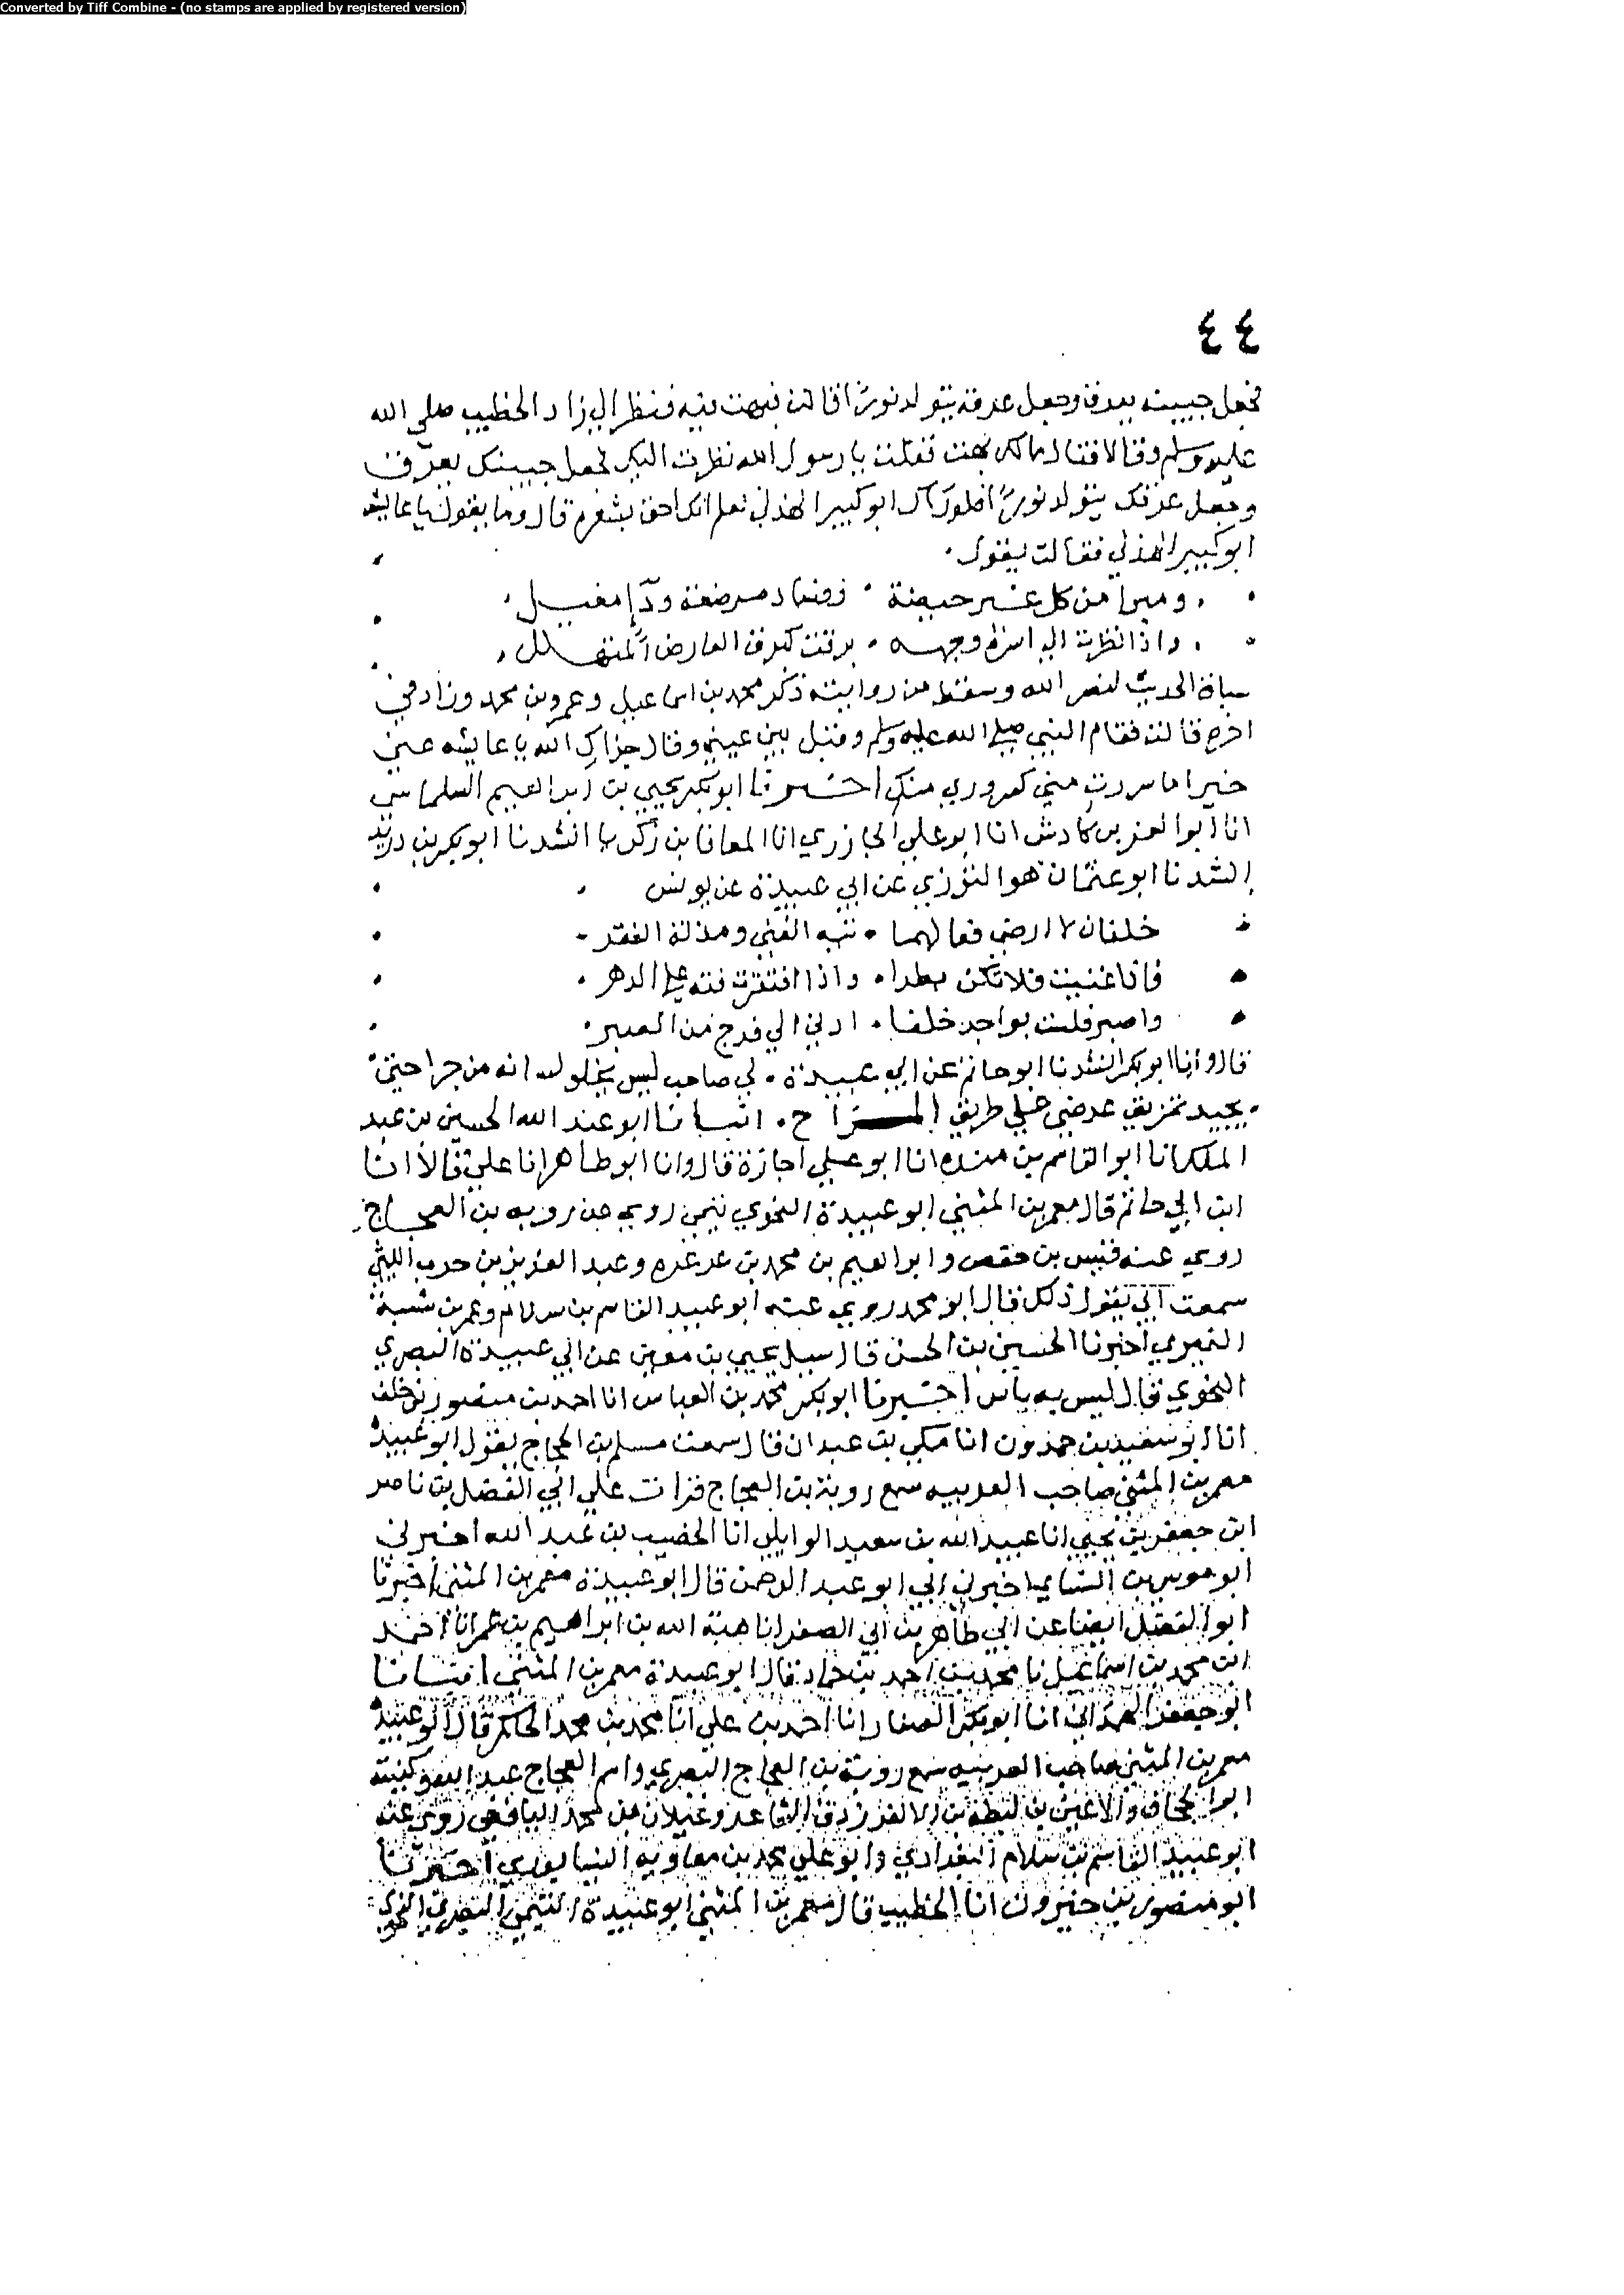 Converted by Tiff Combine - (no stamps are applied by registered version)
٤٤
فجعل جبينه يعرق وجعل عرقه يتولد نورا قالت فبهت فيه فنظر الي زاد الخطيب صلى الله
عليه وسلم وقالا فقال مالك بهت فقلت يا رسول الله نظرت اليك فجعل جبينك يعرق
وجعل عرقك يتولد نورا فلو رآك ابو كبير الهذلي لعلم انك احق بشعره قال وما يقول يا عايشه
ابو كبير الهذلي فقالت يقول
ومبرا من كل غبر حيضة وفساد مرضعة وداء مغيل
واذا نظرت الى اسرة وجهه برقت كبرق العارض المتهلل
سياق الحديث لنصر الله وسقط من روايته ذكر محمد بن اسماعيل وعمرو بن محمد وزاد في
اخره قالت فقام النبي صلى الله عليه وسلم وقبل بين عيني وقال جزاك الله يا عايشه عني
خيرا ما سررت مني كسروري منك اخبرنا ابو بكر يحيى بن ابراهيم السلماسي
انا ابو العز بن كادش انا ابو علي الجازري انا المعافا بن زكريا انشدنا ابو بكر بن دريد
انشدنا ابو عثمان هو التوزي عن ابي عبيدة عن يونس
خلقان لا ارضى فعالهما تيه الغنى ومذلة الفقر
فاذا غنيت فلا تكن بطرا واذا افتقرت فته على الدهر
واصبر فلست بواجد خلقا ادنى الي فرج من الصبر
قال وانا ابو بكر انشدنا ابو حاتم عن ابي عبيدة لي صاحب ليس يخلو لسانه من جراحتي
يجيد تمزيق عرضي على طريق المزاح انبانا ابو عبد الله الحسين بن عبد
الملك انا ابو القاسم بن منده انا ابو علي اجازة قال وانا ابو طاهر انا علي قالا انا
ابن ابي حاتم قال معمر بن المثنى ابو عبيدة النحوي تيمي روى عن روبه بن العجاج
روى عنه قيس بن حفص وابراهيم بن محمد بن عرعره وعبد العزيز بن حرب الليثي
سمعت ابي يقول ذلك قال ابو محمد روى عنه ابو عبيد القاسم بن سلام وعمر بن شبة
النميري اخبرنا الحسين بن الحسن قال سيل يحيى بن معين عن ابي عبيدة البصري
النحوي فقال ليس به باس اخبرنا ابو بكر محمد بن العباس انا احمد بن منصور بن خلف
انا ابو سعيد بن حمدون انا مكي بن عبدان قال سمعت مسلم بن الحجاج يقول ابو عبيدة
معمر بن المثنى صاحب العربيه سمع روبة بن العجاج قرات على ابي الفضل بن ناصر
ابن جعفر بن يحيى انا عبيد الله بن سعيد الوايلي انا الخصيب بن عبد الله اخبرني
ابو موسى بن النساي اخبرني ابي ابو عبد الرحمن قال ابو عبيدة معمر بن المثنى اخبرنا
ابو الفضل ايضا عن ابي طاهر بن ابي الصقر انا هبة الله بن ابراهيم بن عمر انا احمد
ابن محمد بن اسماعيل نا محمد بن احمد بن حماد قال ابو عبيدة معمر بن المثنى انبانا
ابو جعفر الهمداني انا ابو بكر الصفار انا احمد بن علي انا محمد بن محمد الحاكم قال ابو عبيدة
معمر بن المثنى صاحب العربيه سمع روبة بن العجاج البصري واسم العجاج عبد الله كنيته
ابو الجحاف والاعين بن لبطه بن الفرزدق الشاعر وغيلان بن محمد اليافعي روى عنه
ابو عبيد القاسم بن سلام البغدادي وابو علي محمد بن معاوية النيسابوري اخبرنا
ابو منصور بن خيرون انا الخطيب قال معمر بن المثنى ابو عبيدة التيمي البصري النحوي